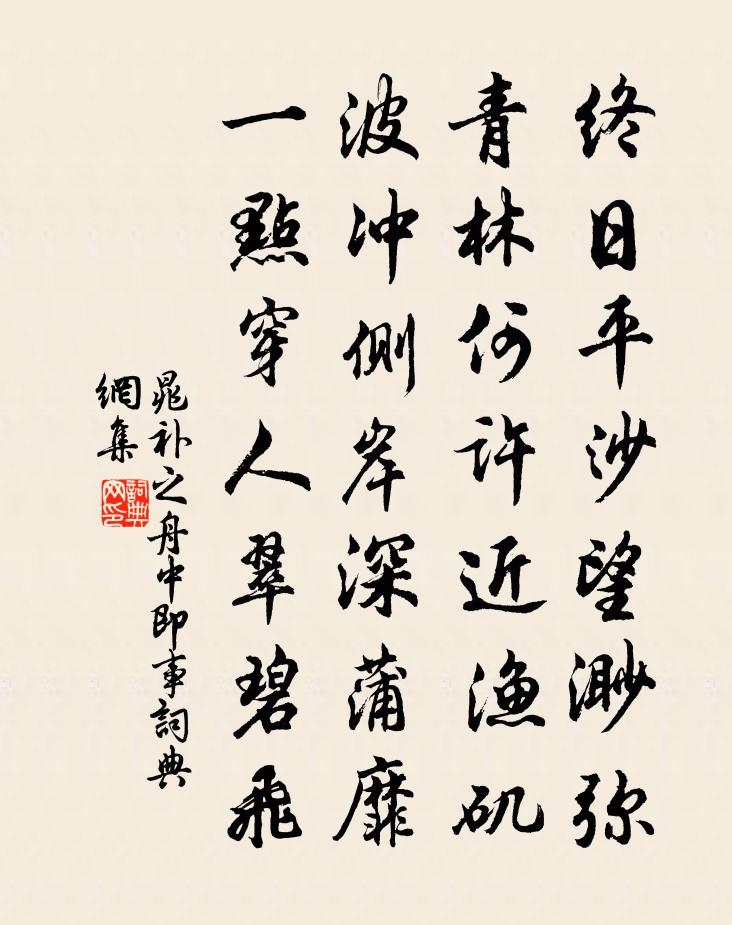 终日平沙望渺弥
青林何许近渔矶
波冲侧岸深蒲靡
一點穿人翠碧飛
晁补之舟中即事詞典
網集
詞典
网印